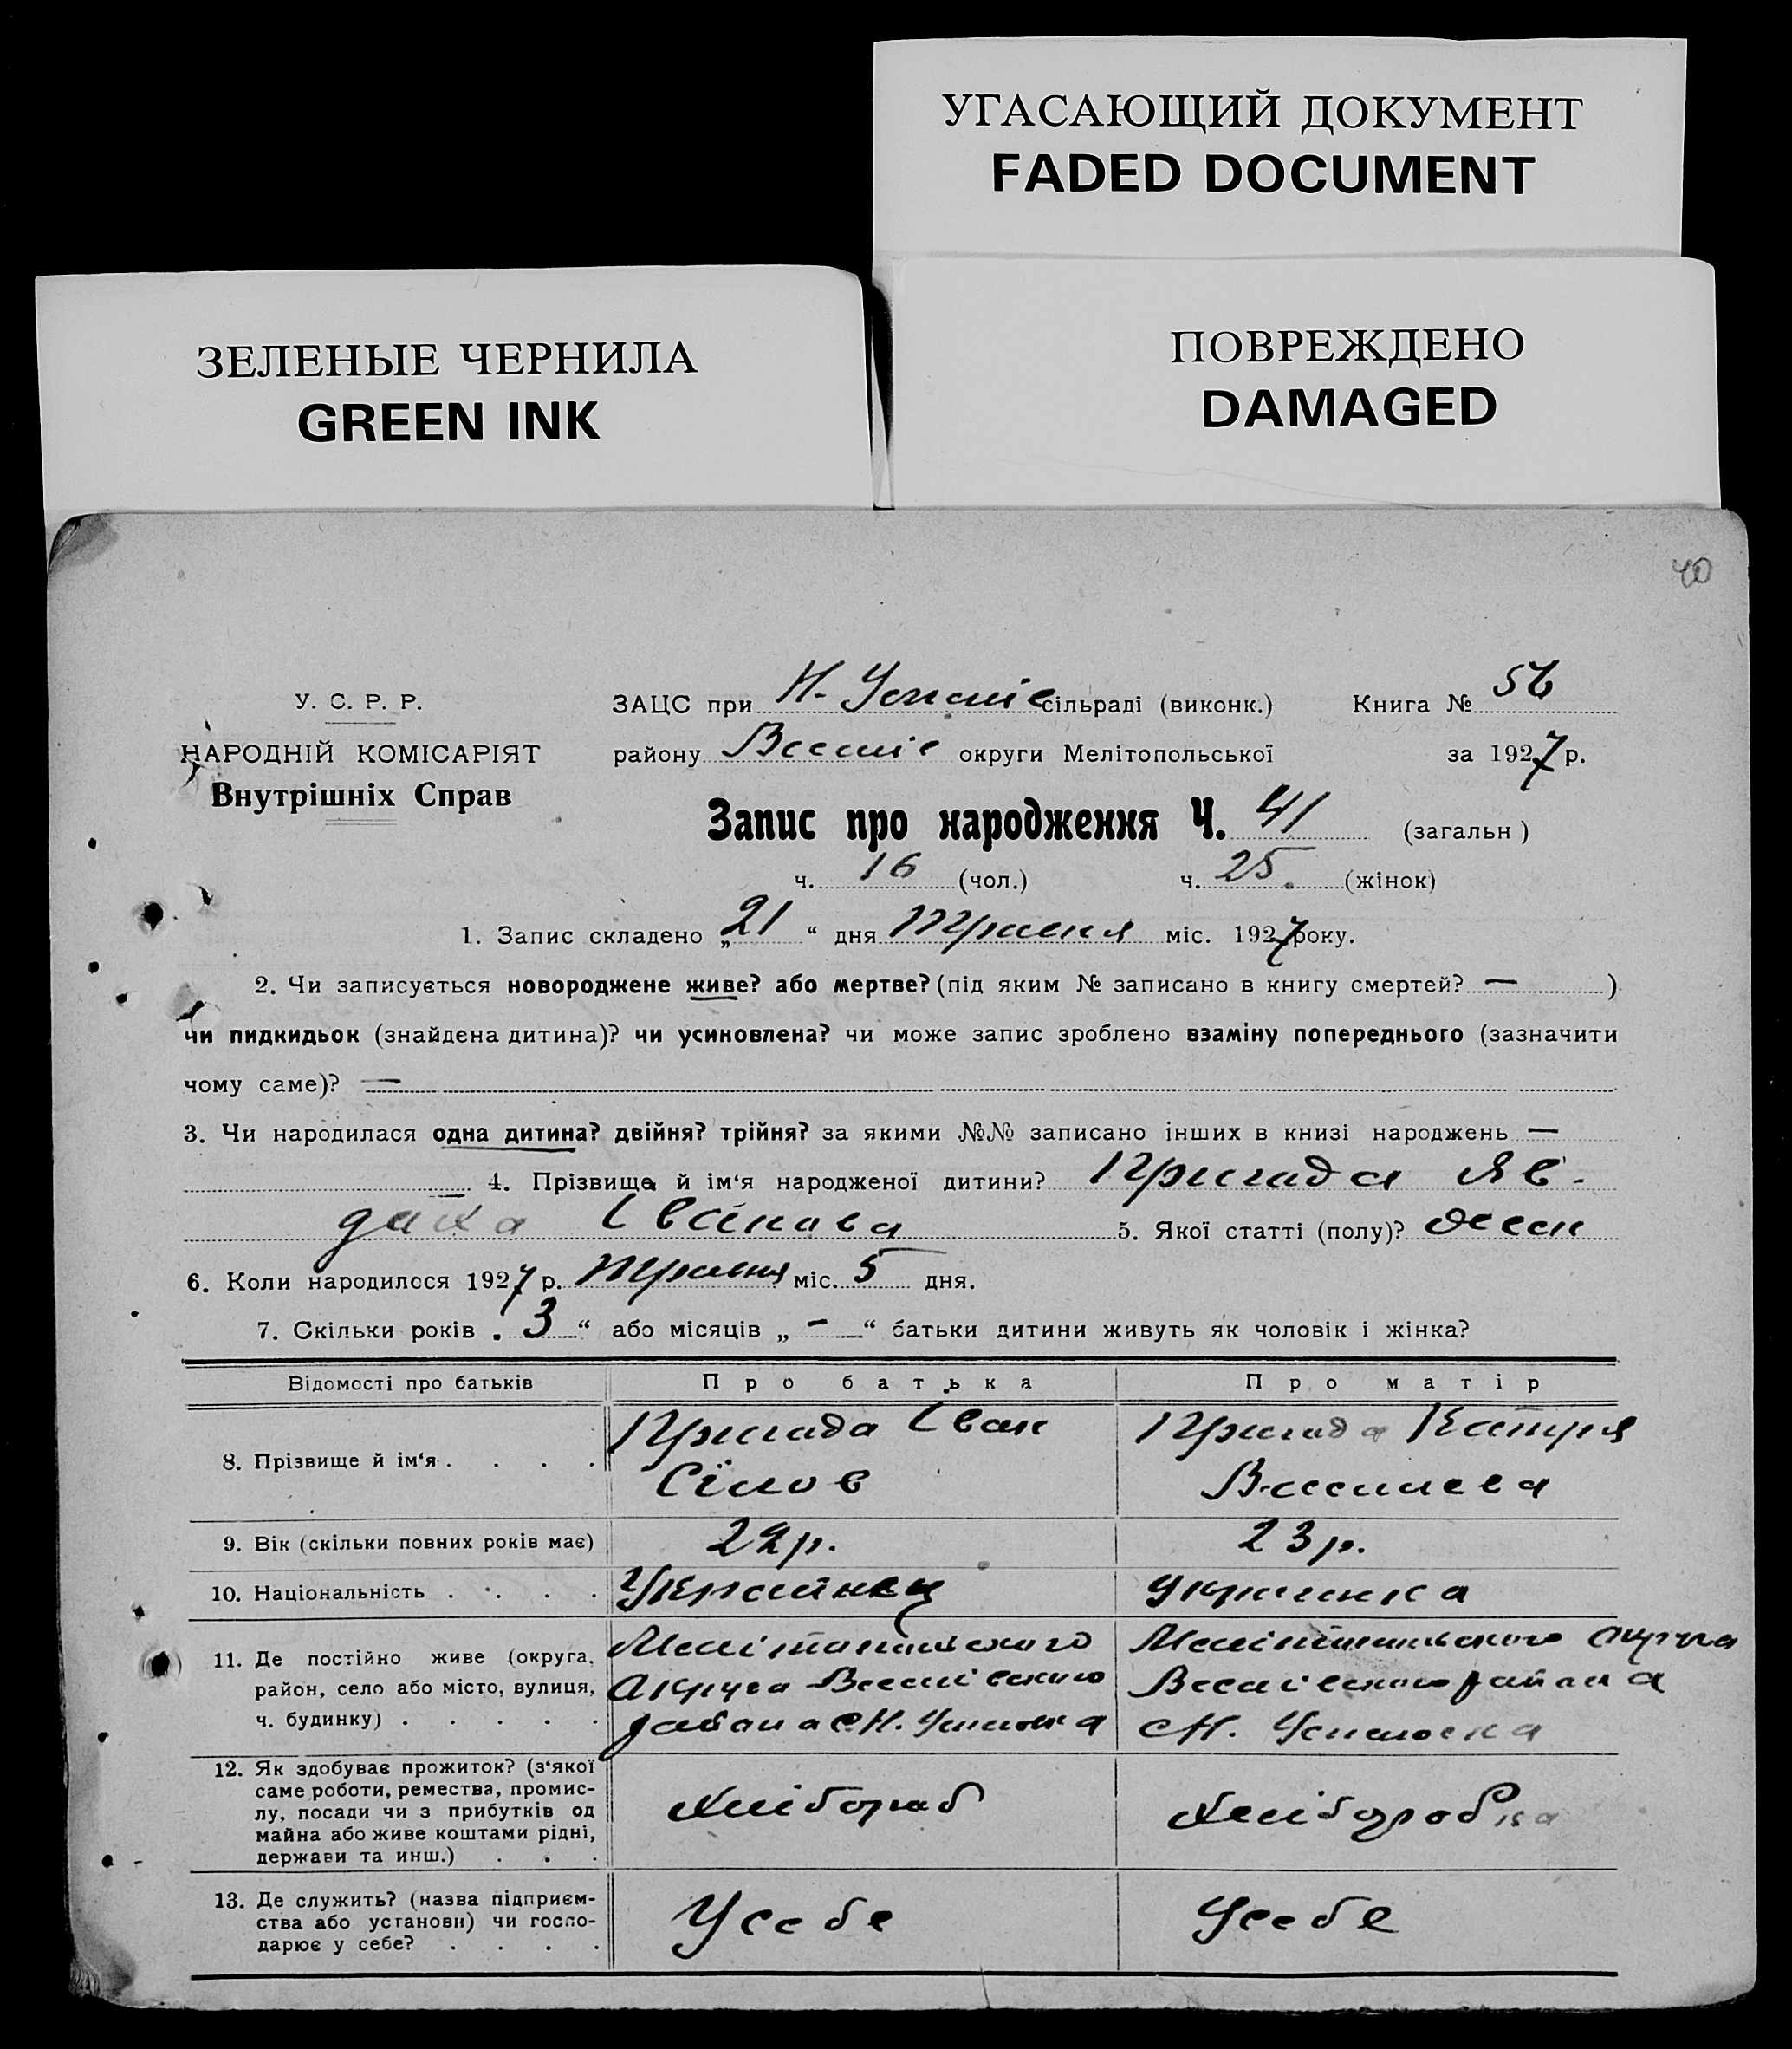 УГАСАЮЩИЙ ДОКУМЕНТ
FADED DOCUMENT
ЗЕЛЕНЫЕ ЧЕРНИЛА
GREEN INK
ПОВРЕЖДЕНО
DAMAGED
40
У. С. Р. Р.
НАРОДНІЙ КОМІСАРІЯТ
Внутрішніх Справ
ЗАЦС при Н. Усппіс сільраді (виконк.) Книга № 56
району Весел округи Мелітопольської за 1927 р.
Запис про народження Ч. 41 (загальн)
ч. 16 (чол.) ч. 25. (жінок)
1. Запис складено „21“ дня Травня міс. 1927 року.
2. Чи записується новороджене живе? або мертве? (під яким № записано в книгу смертей? — )
чи пидкидьок (знайдена дитина)? чи усиновлена? чи може запис зроблено взаміну попереднього (зазначити
чому саме)? —
3. Чи народилася одна дитина? двійня? трійня? за якими №№ записано інших в книзі народжень —
— 4. Прізвище й ім‘я народженої дитини? Пригада Яв-
даха Іванова 5. Якої статті (полу)? Жен
6. Коли народилося 1927 р. Травня міс. 5 дня.
7. Скільки років „ 3 “ або місяців „ - “ батьки дитини живуть як чоловік і жінка?
Відомості про батьків Про батька Про матір
8. Прізвище й ім‘я . . . . Пригада Іван Сілов Пригада Катря
9. Вік (скільки повних років має) 22 р. 23 р.
10. Національність . . . . Українец Украинка
11. Де постійно живе (округа, Мелітопильского Мелітопильского округа
район, село або місто, вулиця, Округа Веселівского Веселівского района
ч. будинку) . . . . . района с Н. Успиовка с Н. Успиовка
12. Як здобуває прожиток? (з‘якої
саме роботи, ремества, промис-
лу, посади чи з прибутків од Хлібороб Хлібаробка
майна або живе коштами рідні,
держави та инш.) . . .
13. Де служить? (назва підприєм-
ства або установи) чи госпо- Усебе Усебе
дарює у себе? . . . .